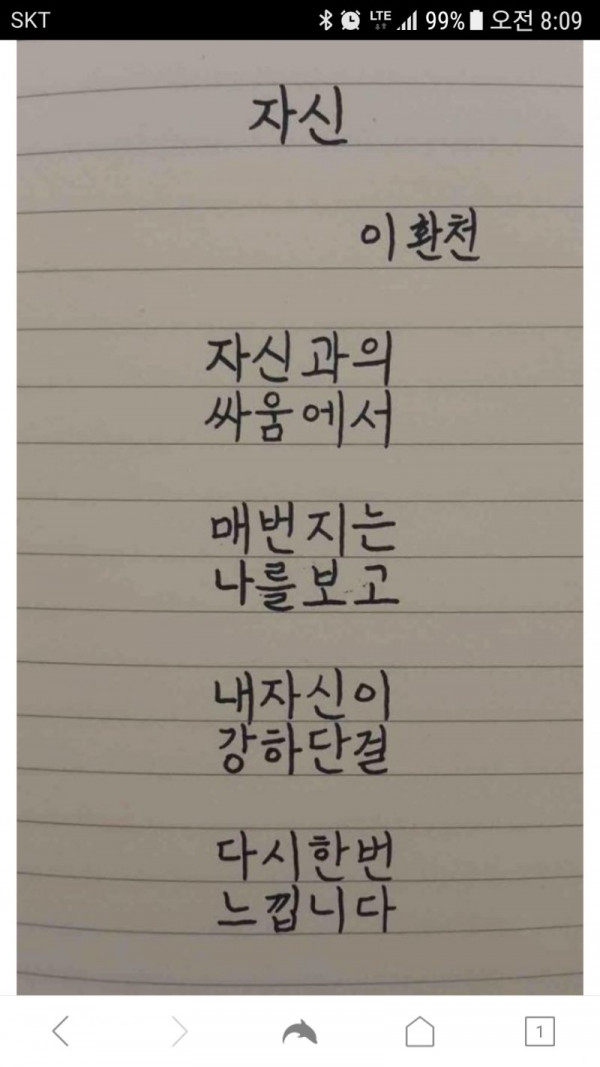 SKT LTE 99% 오전 8:09
자신
이환천
자신과의
싸움에서
매번지는
나를보고
내자신이
강하단걸
다시한번
느낍니다
1